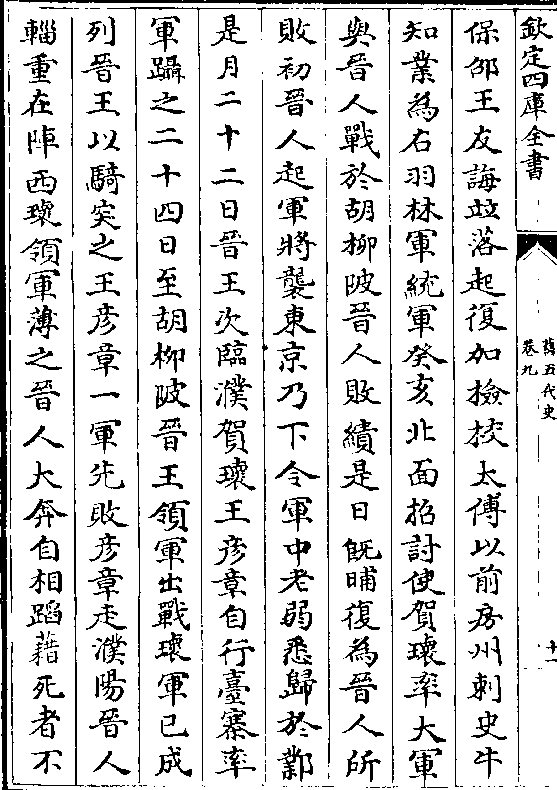 欽定四庫全書
舊五代史
卷九
十一
保邵王友誨竝落起復加檢校太傅以前房州刺史牛
知業為右羽林軍統軍癸亥北面招討使賀瓌率大軍
與晉人戰於胡柳陂晉人敗績是日既晡復為晉人所
敗初晉人起軍將襲東京乃下令軍中老弱悉歸於鄴
是月二十二日晉王次臨濮賀瓌王彦章自行臺寨率
軍躡之二十四日至胡柳陂晉王領軍出戰瓌軍已成
列晉王以騎突之王彦章一軍先敗彦章走濮陽晉人
輜重在陣西瓌領軍薄之晉人大奔自相蹈藉死者不